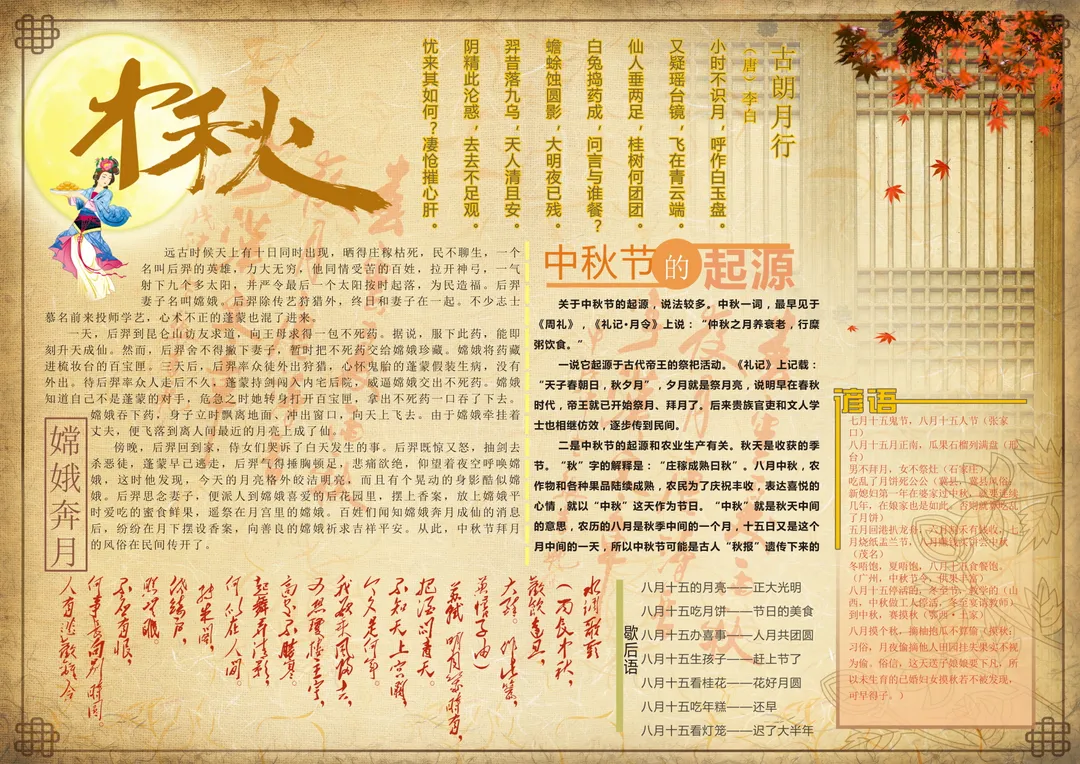 中秋
古朗月行
（唐）李白
小时不识月，呼作白玉盘。
又疑瑶台镜，飞在青云端。
仙人垂两足，桂树何团团。
白兔捣药成，问言与谁餐？
蟾蜍蚀圆影，大明夜已残。
羿昔落九乌，天人清且安。
阴精此沦惑，去去不足观。
忧来其如何？凄怆摧心肝。
嫦娥奔月
远古时候天上有十日同时出现，晒得庄稼枯死，民不聊生，一个
名叫后羿的英雄，力大无穷，他同情受苦的百姓，拉开神弓，一气
射下九个多太阳，并严令最后一个太阳按时起落，为民造福。后羿
妻子名叫嫦娥。后羿除传艺狩猎外，终日和妻子在一起。不少志士
慕名前来投师学艺，心术不正的蓬蒙也混了进来。
一天，后羿到昆仑山访友求道，向王母求得一包不死药。据说，服下此药，能即
刻升天成仙。然而，后羿舍不得撇下妻子，暂时把不死药交给嫦娥珍藏。嫦娥将药藏
进梳妆台的百宝匣。三天后，后羿率众徒外出狩猎，心怀鬼胎的蓬蒙假装生病，没有
外出。待后羿率众人走后不久，蓬蒙持剑闯入内宅后院，威逼嫦娥交出不死药。嫦娥
知道自己不是蓬蒙的对手，危急之时她转身打开百宝匣，拿出不死药一口吞了下去。
嫦娥吞下药，身子立时飘离地面、冲出窗口，向天上飞去。由于嫦娥牵挂着
丈夫，便飞落到离人间最近的月亮上成了仙。
傍晚，后羿回到家，侍女们哭诉了白天发生的事。后羿既惊又怒，抽剑去
杀恶徒，蓬蒙早已逃走，后羿气得捶胸顿足，悲痛欲绝，仰望着夜空呼唤嫦
娥，这时他发现，今天的月亮格外皎洁明亮，而且有个晃动的身影酷似嫦
娥。后羿思念妻子，便派人到嫦娥喜爱的后花园里，摆上香案，放上嫦娥平
时爱吃的蜜食鲜果，遥祭在月宫里的嫦娥。百姓们闻知嫦娥奔月成仙的消息
后，纷纷在月下摆设香案，向善良的嫦娥祈求吉祥平安。从此，中秋节拜月
的风俗在民间传开了。
中秋节的起源
关于中秋节的起源，说法较多。中秋一词，最早见于
《周礼》，《礼记·月令》上说：“仲秋之月养衰老，行糜
粥饮食。”
一说它起源于古代帝王的祭祀活动。《礼记》上记载：
“天子春朝日，秋夕月”，夕月就是祭月亮，说明早在春秋
时代，帝王就已开始祭月、拜月了。后来贵族官吏和文人学
士也相继仿效，逐步传到民间。
二是中秋节的起源和农业生产有关。秋天是收获的季
节。“秋”字的解释是：“庄稼成熟曰秋”。八月中秋，农
作物和各种果品陆续成熟，农民为了庆祝丰收，表达喜悦的
心情，就以“中秋”这天作为节日。“中秋”就是秋天中间
的意思，农历的八月是秋季中间的一个月，十五日又是这个
月中间的一天，所以中秋节可能是古人“秋报”遗传下来的
谚语
七月十五鬼节，八月十五人节（张家
口）
八月十五月正南，瓜果石榴列满盘（邢
台）
男不拜月，女不祭灶（石家庄）
吃乱了月饼死公公（襄县，冀县风俗，
新媳妇第一年在婆家过中秋，就要连续
几年，在娘家也是如此。否则就算吃乱
了月饼）
五月回港扒龙舟，六月割禾有钱收，七
（茂名）
冬唔饱，夏唔饱，八月十五食餐饱。
（广州，中秋节令，供果丰富）
到中秋，赛摸秋（鄂西·土家）
八月摸个秋，摘柚抱瓜不算偷（摸秋：
习俗，月夜偷摘他人田园挂失果实不视
为偷。俗信，这天送子娘娘要下凡，所
以未生育的已婚妇女摸秋若不被发现，
可早得子。）
水调歌头
（丙辰中秋，
欢饮达旦，
大醉。作此篇，
兼怀子由）
苏轼 明月几时有，
把酒问青天。
不知天上宫阙，
今夕是何年。
我欲乘风归去，
又恐琼楼玉宇，
高处不胜寒。
起舞弄清影，
何似在人间
转朱阁，
低绮户，
照无眠
不应有恨，
何事长向别时圆。
歇后语
八月十五的月亮——正大光明
八月十五吃月饼——节日的美食
八月十五办喜事——人月共团圆
八月十五生孩子——赶上节了
八月十五看桂花——花好月圆
八月十五吃年糕——还早
八月十五看灯笼——迟了大半年